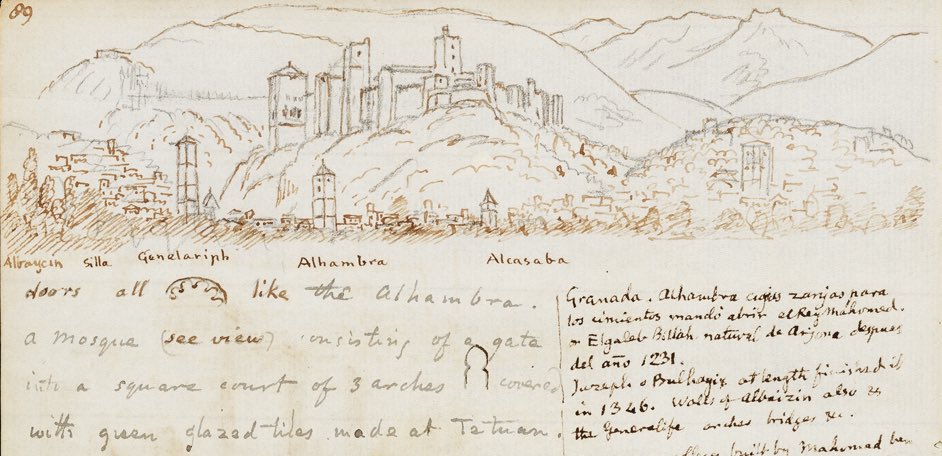 89
Albaycin Silla Genelariph Alhambra Alcasaba
doors all like the Alhambra.
a mosque (see view) consisting of a gate
into a square court of 3 arches covered
with green glazed tiles made at Tetuan.
Granada. Alhambra cujas zanjas para
los cimientos mandó abrir el Rey Mahomed.
o Elgaleb Billah natural de Arjona despues
del año 1231.
Juzeph o Bulhagix at length finished it
in 1346. Walls of Albaizin also &
the Generalife arches bridges &c.
built by Mahomad ben